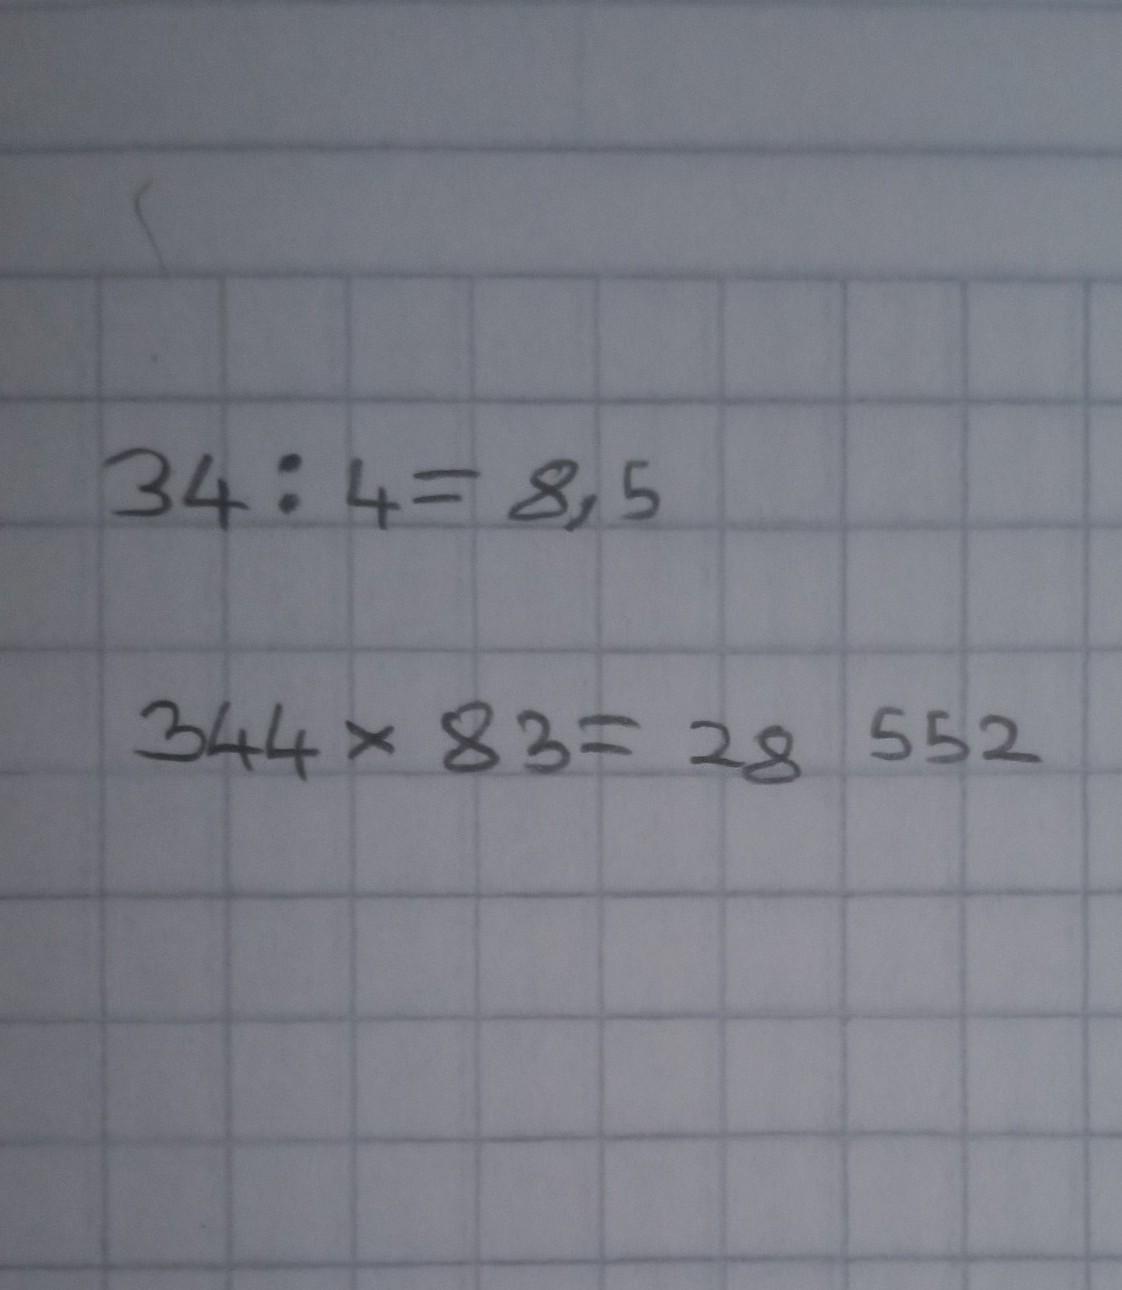 34 : 4 = 8,5
344 × 83 = 28 552